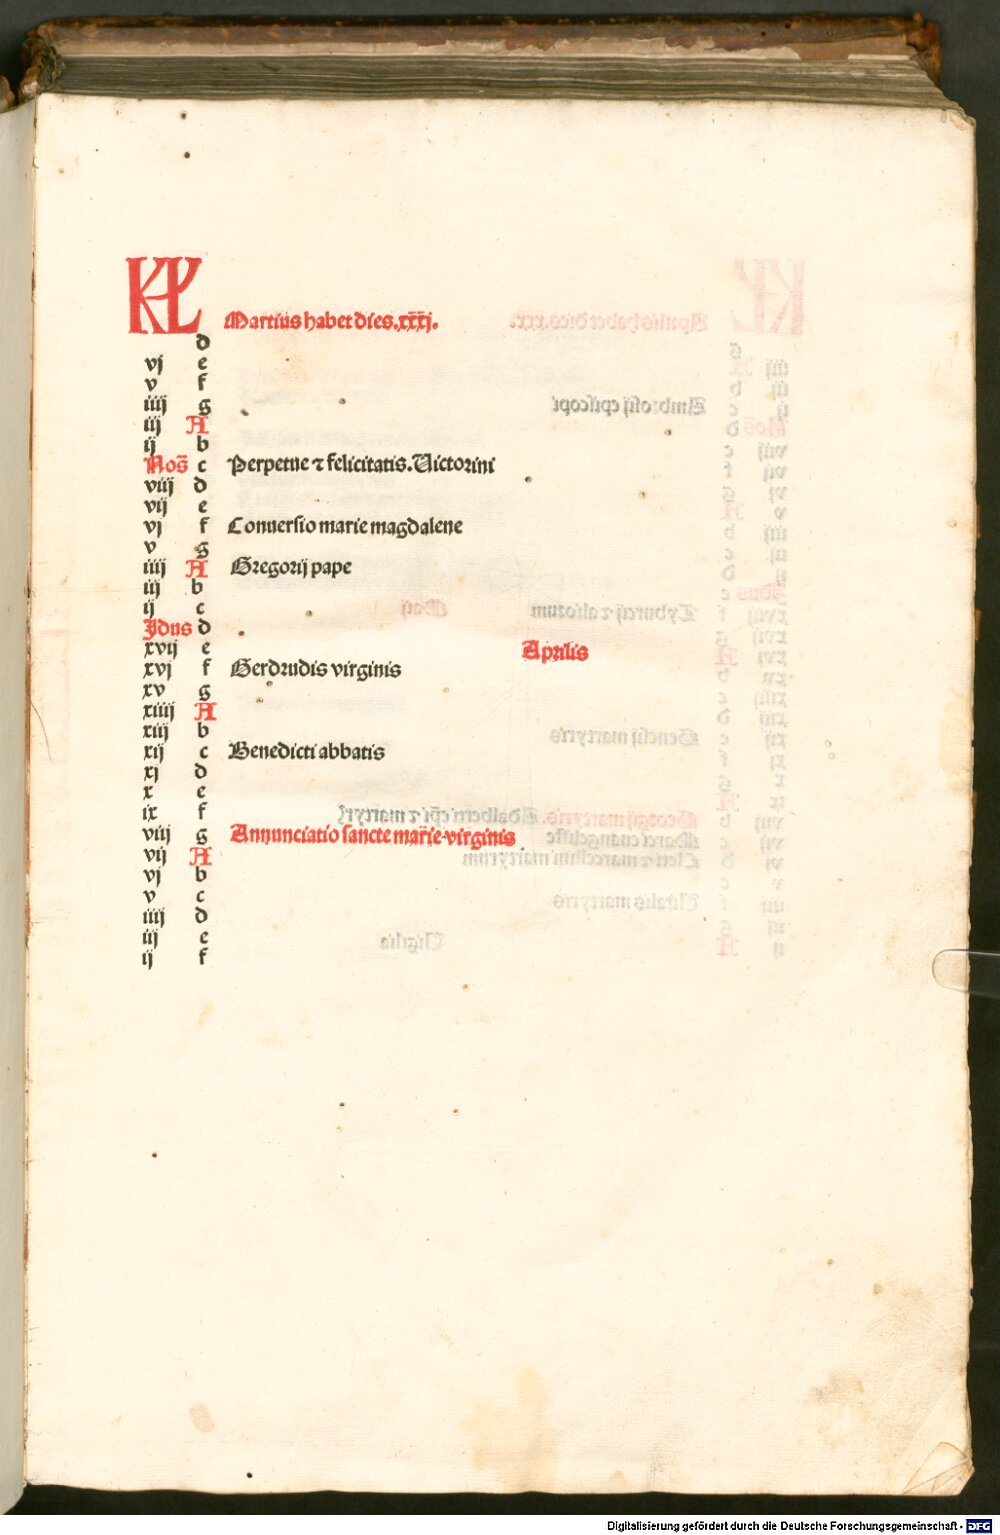 KL Martius habet dies.xxxj.
d
vj e
v f
iiij g
iij A
ij b
Nos̄ c Perpetue ⁊ felicitatis. Victorini
viij d
vij e
vj f Conuersio marie magdalene
v g
iiij A Gregorij pape
iij b
ij c
Idus d
xvij e Aprilis
xvj f Gerdrudis virginis
xv g
xiiij A
xiij b
xij c Benedicti abbatis
xj d
x e
ix f
viij g Annunciatio sancte marie virginis
vij A
vj b
v c
iiij d
iij e
ij f
Digitalisierung gefördert durch die Deutsche Forschungsgemeinschaft - DFG